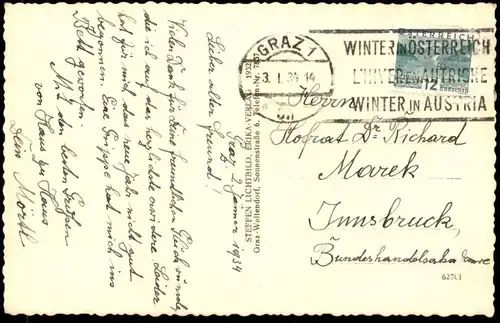 Graz 2. Jänner 1934
Lieber alter Freund!
Vielen Dank für Deine freundlichen Glückwünsche,
die ich auf das herzlichste erwidere. Leider
hat für mich das neue Jahr nicht gut
begonnen. Eine Grippe hat mich ins
Bett geworfen.
Mit den besten Grüßen
von Haus zu Haus
Dein Mörtl
STEFFEN LICHTBILD, ERIKA-VERLAG 1932
Graz-Waltendorf, Sonnenstraße 6, Telefon-Nr.
GRAZ 1
3. I. 34. 14
WINTER IN ÖSTERREICH
L'HIVER EN AUTRICHE
WINTER IN AUSTRIA
ÖSTERREICH
12
GROSCHEN
Herrn
Hofrat Dr. Richard
Marek
Innsbruck,
Bundeshandelsaka
62761